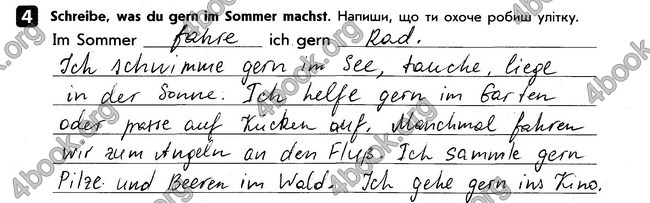 4 Schreibe, was du gern im Sommer machst. Напиши, що ти охоче робиш улітку.
Im Sommer fahre ich gern Rad.
Ich schwimme gern im See, tauche, liege
in der Sonne. Ich helfe gern im Garten
oder passe auf Kücken auf. Manchmal fahren
wir zum Angeln an den Fluß. Ich sammle gern
Pilze und Beeren im Wald. Ich gehe gern ins Kino.
4book.org